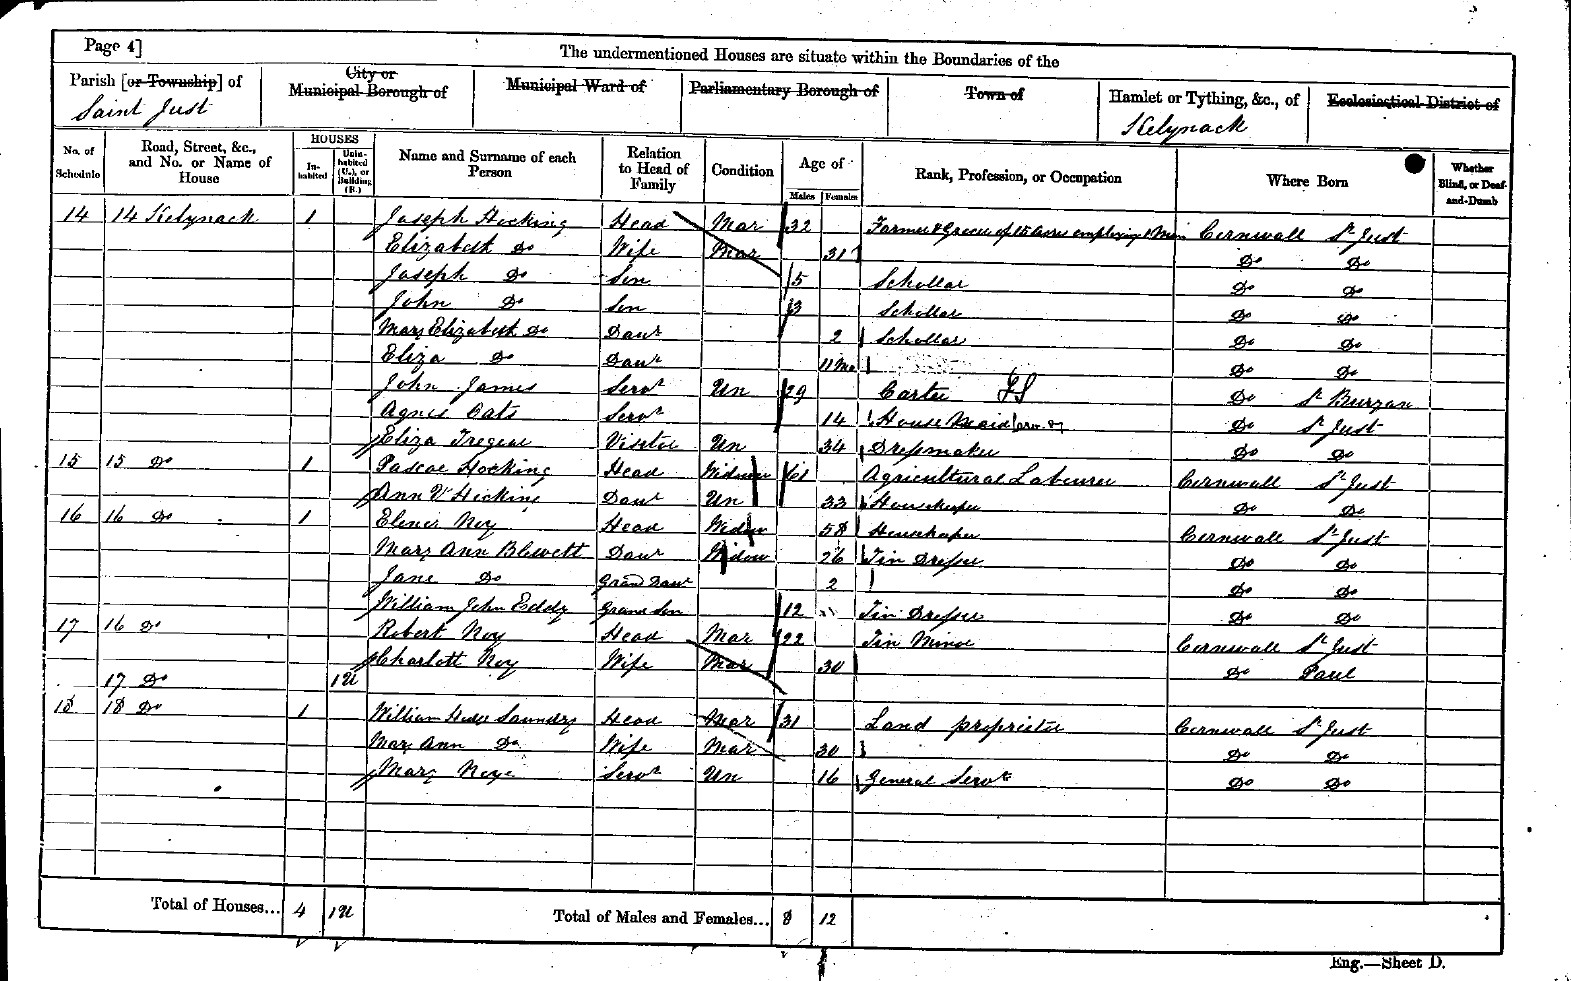 Page 4]
The undermentioned Houses are situate within the Boundaries of the
Parish [or Township] of Saint Just
City or Municipal Borough of
Municipal Ward of
Parliamentary Borough of
Town of
Hamlet or Tything, &c., of Kelynack
Ecclesiastical District of
No. of Schedule
Road, Street, &c., and No. or Name of House
HOUSES
In-habited
Unin-habited (U.), or Building (B.)
Name and Surname of each Person
Relation to Head of Family
Condition
Age of
Males
Females
Rank, Profession, or Occupation
Where Born
Whether Blind, or Deaf-and-Dumb
14 14 Kelynack 1 Joseph Hocking Head Mar 32 Farmer & Grocer of 15 acres employing 1 Man Cornwall St Just
Elizabeth Do Wife Mar 31 Do Do
Joseph Do Son 5 Schollar Do Do
John Do Son 3 Schollar Do Do
Mary Elizabeth Do Daur 2 Schollar Do Do
Eliza Do Daur 11 Mo Do Do
John James Servt Un 29 Carter Do St Buryan
Agnes Oats Servt 14 House Maid Do St Just
Eliza Tregear Visitor Un 34 Dressmaker Do Do
15 15 Do 1 Pascoe Hocking Head Widower 61 Agricultural Labourer Cornwall St Just
Ann Hocking Daur Un 33 Housekeeper Do Do
16 16 Do 1 Elenor Roy Head Widow 58 Housekeeper Cornwall St Just
Mary Ann Blewett Daur Widow 26 Tin Dresser Do Do
Jane Do Grand Daur 2 Do Do
William John Eddy Grand Son 12 Tin Dresser Do Do
17 16 Do Robert Roy Head Mar 22 Tin Miner Cornwall St Just
Charlott Roy Wife Mar 30 Do Paul
17 Do 1U
18 18 Do 1 William Saundry Head Mar 31 Land proprietor Cornwall St Just
Mary Ann Do Wife Mar 30 Do Do
Mary Servt Un 16 General Servt Do Do
Total of Houses... 4 1U
Total of Males and Females... 8 12
Eng.—Sheet D.